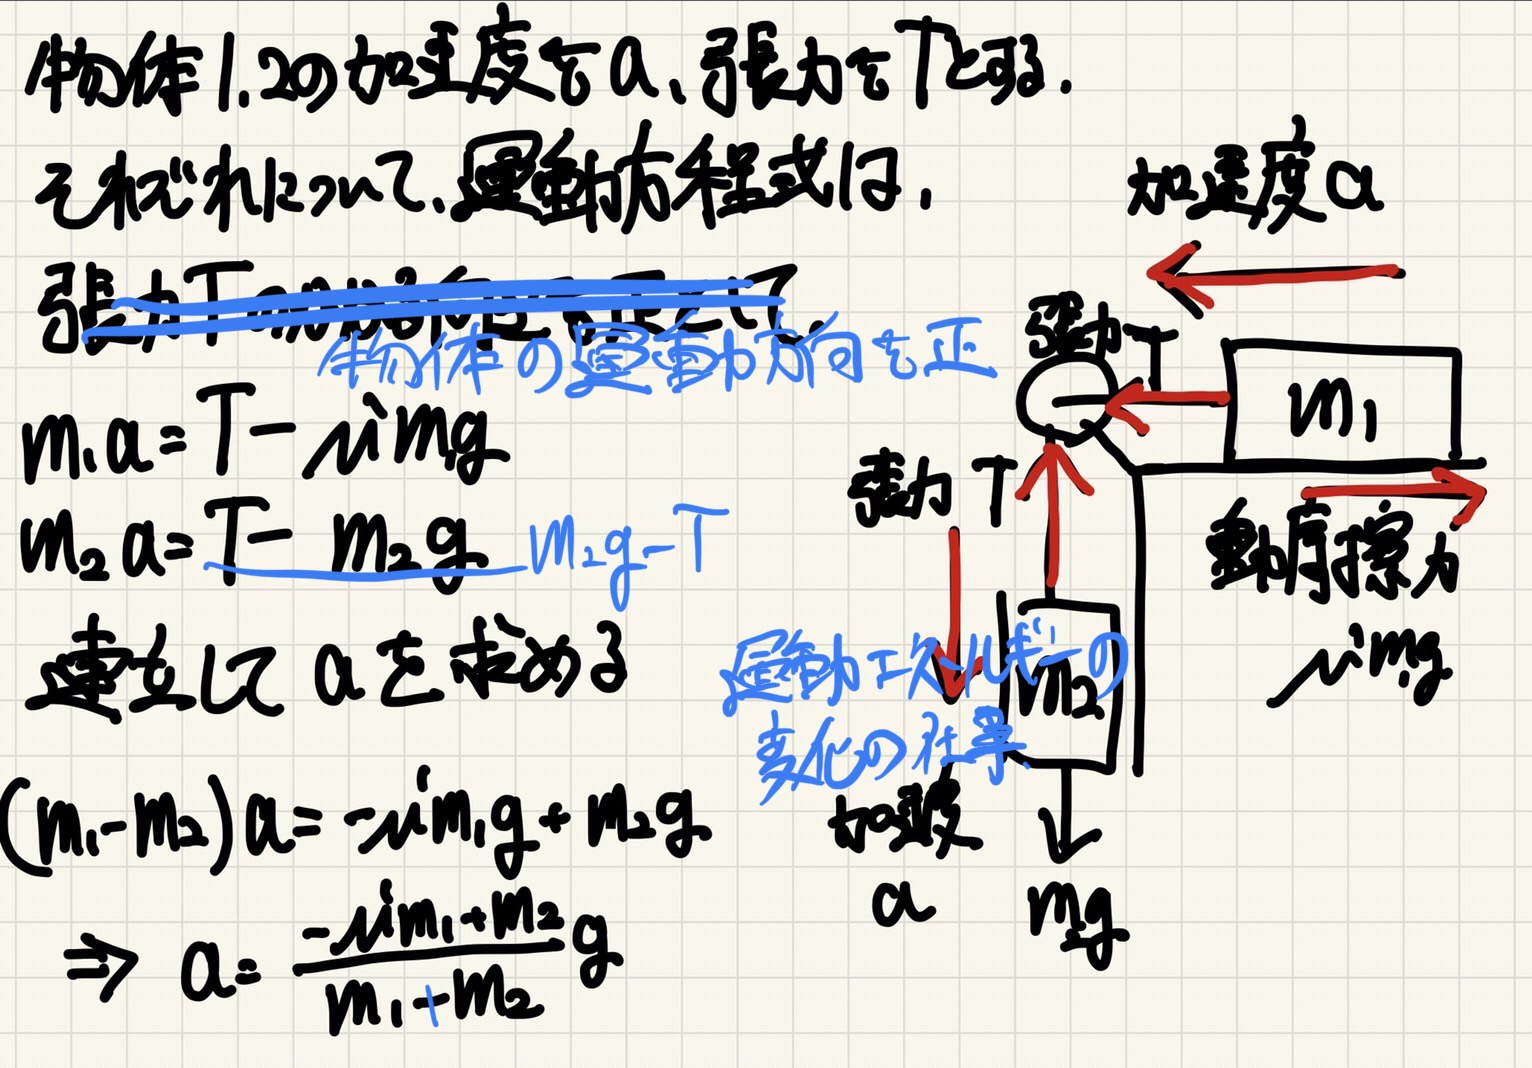 物体1.2の加速度をa、張力をTとする.
それぞれについて、運動方程式は、
張力Tのかかる向きを正として、
物体の運動方向を正
m₁a=T-μ'm₁g
m₂a=T- m₂g m₂g-T
連立して aを求める
(m₁-m₂)a=-μ'm₁g+m₂g
⇒ a= (-μ'm₁+m₂)/(m₁+m₂) g
加速度a
張力T
m₁
張力 T
動摩擦力
μ'm₁g
m₂
運動エネルギーの
変化の仕事
加速度
a
m₂g